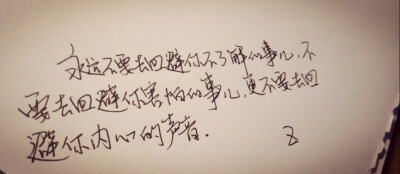 永远不要去回避你不了解的事儿,不
要去回避你害怕的事儿,更不要去回
避你内心的声音.
Z